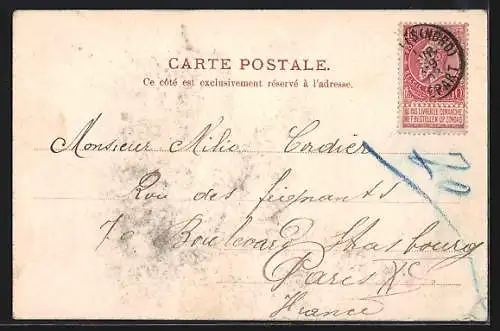 CARTE POSTALE.
Ce côté est exclusivement réservé à l'adresse.
(NORD)
DEPART
NE PAS LIVRER LE DIMANCHE
NIET BESTELLEN OP ZONDAG
Monsieur Milio Cordier
Roi des feignants
7c Boulevard Strasbourg
Paris Xe
France